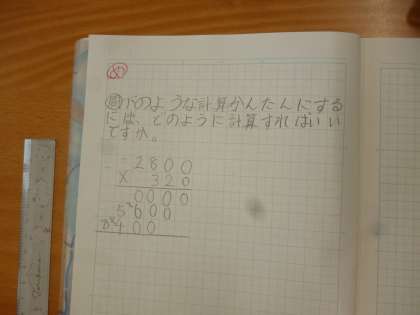 問 下のような計算かんたんにする
には、どのように計算すればいい
ですか。
2800
× 320
0000
5600
8400